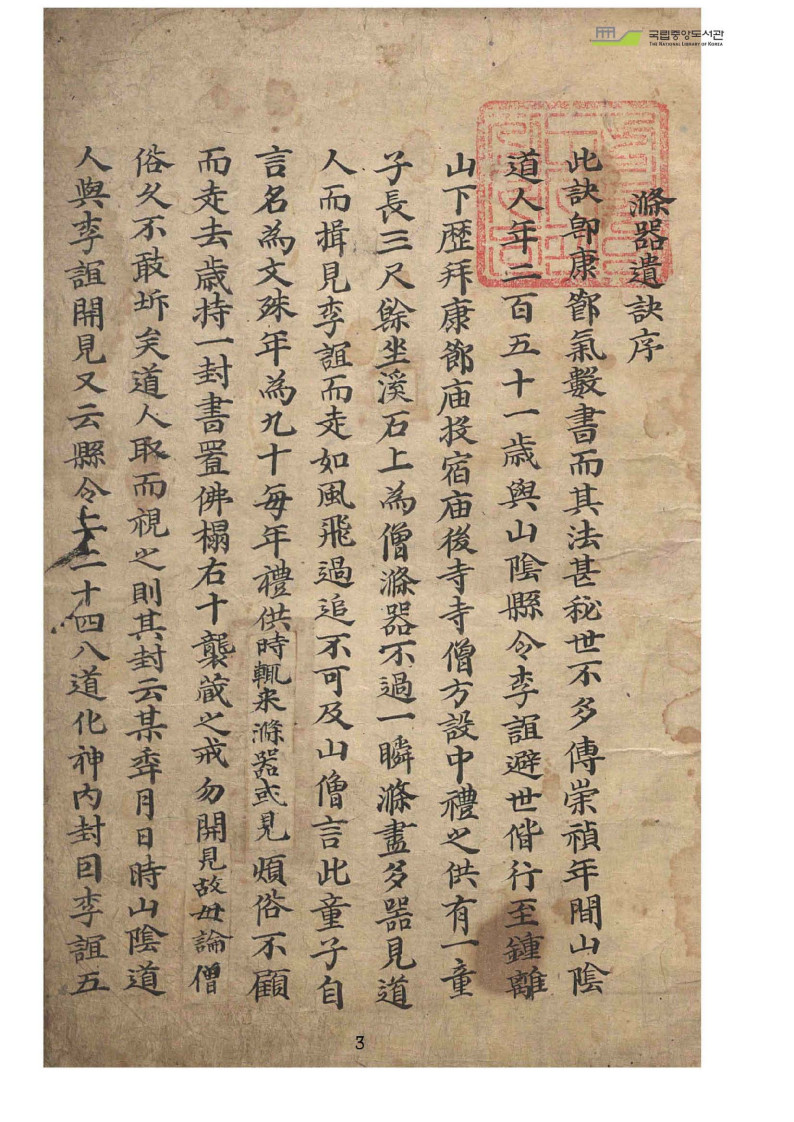 국립중앙도서관
THE NATIONAL LIBRARY OF KOREA
滌器遺訣序
此訣卽康節氣數書而其法甚秘世不多傳崇禎年間山陰
道人年二百五十一歲與山陰縣令李誼避世偕行至鍾離
山下歷拜康節庙投宿庙後寺寺僧方設中禮之供有一童
子長三尺餘坐溪石上為僧滌器不過一瞬滌盡多器見道
人而揖見李誼而走如風飛過追不可及山僧言此童子自
言名為文殊年為九十每年禮供時輒來滌器或見煩俗不顧
而走去歲持一封書置佛榻右十襲藏之戒勿開見故毋論僧
俗久不敢坼矣道人取而視之則其封云某年月日時山陰道
人與李誼開見又云縣令上二十四八道化神內封曰李誼五
3